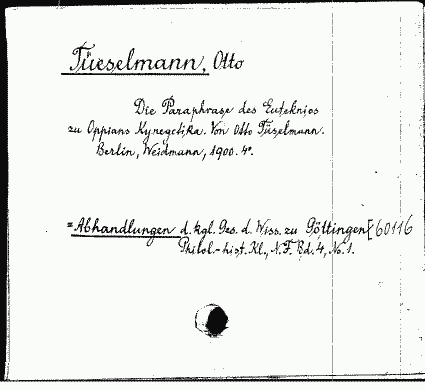 Tüeselmann, Otto
Die Paraphrase des Euteknios
zu Oppians Kynegetika. Von Otto Tüselmann.
Berlin, Weidmann, 1900. 4°.
= Abhandlungen d. kgl. Ges. d. Wiss. zu Göttingen [60116
Philol.-hist. Kl., N. F. Bd. 4, No. 1.